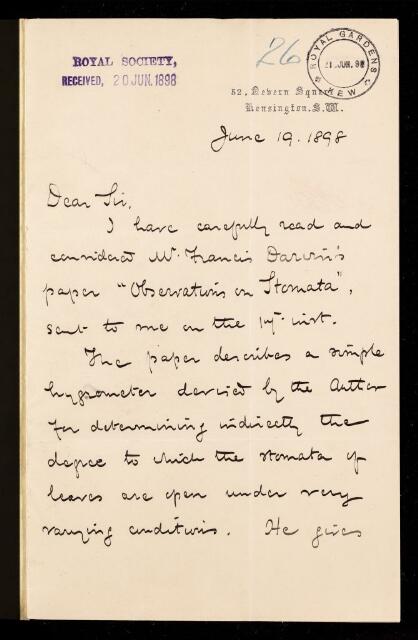 ROYAL SOCIETY,
RECEIVED, 20 JUN. 1898
26
ROYAL GARDENS
21 JUN. 98
KEW
52, Nevern Square
Kensington. S.W.
June 19. 1898
Dear Sir,
I have carefully read and
considered Mr. Francis Darwin's
paper "Observations on Stomata",
sent to me on the inst.
The paper describes a simple
hygrometer devised by the Author
for determining indirectly the
degree to which the stomata of
leaves are open under very
varying conditions. He gives